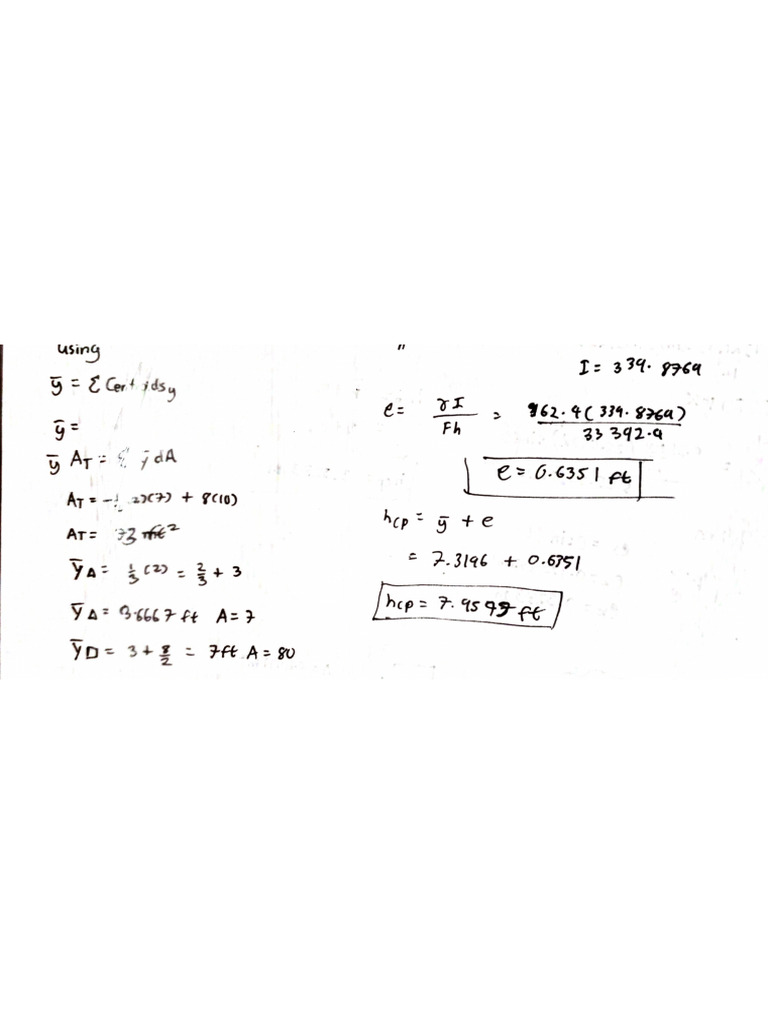 using
ȳ = Σ
ȳ =
ȳ A_T = ȳ dA
A_T = - 2)(7) + 8(10)
A_T = 73 ft²
ȳ△ = 1/3 (2) = 2/3 + 3
ȳ△ = 3.6667 ft A = 7
ȳ□ = 3 + 8/2 = 7ft A = 80
"
I = 339.8769
e = γI / Fh = 162.4(339.8769) / 33392.9
e = 0.6351 ft
hcp = ȳ + e
= 7.3196 + 0.6351
hcp = 7.9547 ft